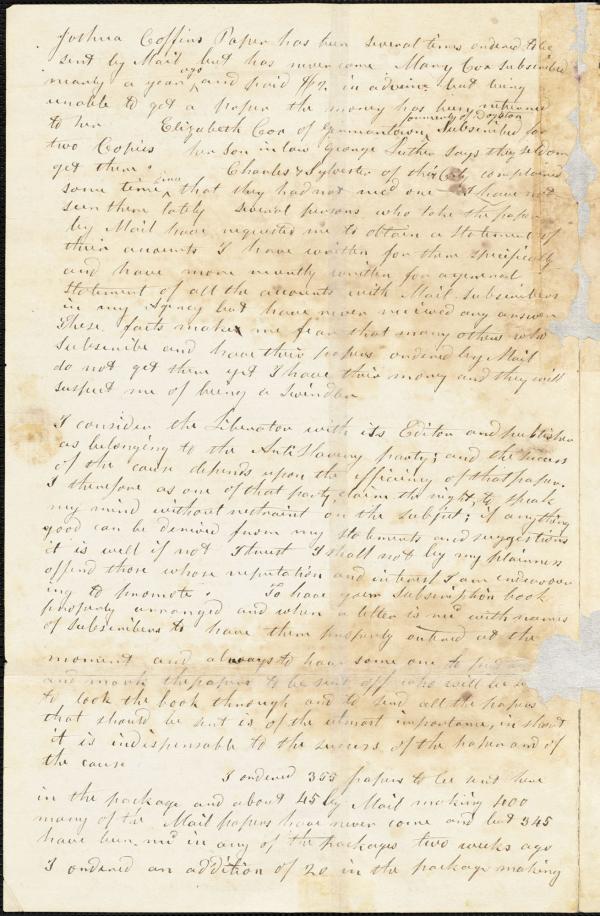 Joshua Coffins Paper has been several times ordered to be
sent by Mail but has never come Mary Cox subscribed
nearly a year ago and paid $2. in advance but being
unable to get a paper the money has been returned
to her Elizabeth Cox of Germantown formerly of Boston Subscribed for
two Copies her son in law George Luther says they seldom
get them. Charles & Sylvester of this City complained
some time since that they had not rec'd one I have not
seen them lately several persons who take the paper
by Mail have requested me to obtain a statement of
their accounts I have written for them specifically
and have more recently written for a general
Statement of all the accounts with Mail Subscribers
in my Agency but have never received any answer
These facts make me fear that many others who
Subscribe and have their papers ordered by Mail
do not get them yet I have their money and they will
suspect me of being a Swindler
I consider the Liberator with its Editor and publisher
as belonging to the AntiSlavery party; and the success
of the cause depends upon the efficiency of that paper.
I therefore as one of that party, claim the right, to speak
my mind without restraint on the subject; if anything
good can be derived from my statements and suggestions
it is well if not I trust I shall not by my plainness
offend those whose reputation and interest I am endeavour
ing to promote. To have your Subscription book
properly arranged and when a letter is rec'd with names
of subscribers to have them properly entered at the
moment and always to have some one to
and mark the papers to be sent off who will be
to look the book through and to send all the papers
that should be sent is of the utmost importance, in short
it is indispensable to the success of the paper and of
the cause
I ordered 355 papers to be sent here
in the package and about 45 by Mail making 400
many of the Mail papers have never come and but 345
have been rec'd in any of the packages two weeks ago
I ordered an addition of 20 in the package making